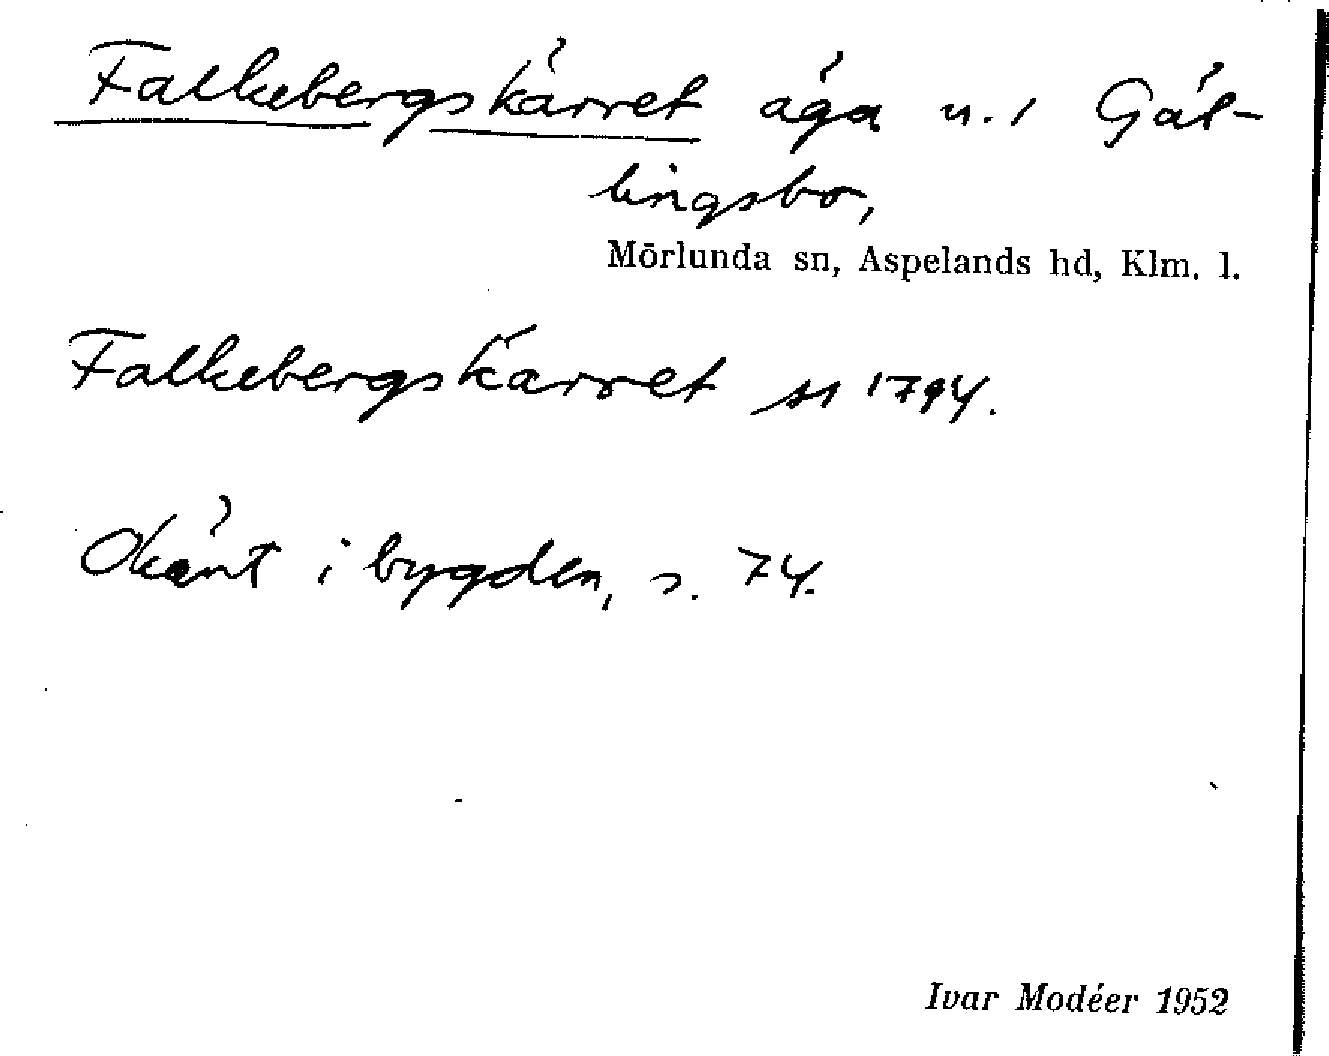 Falkebergskärret äga u. 1 Gäl-
lingsbo,
Mörlunda sn, Aspelands hd, Klm. l.
Falkebergskärret 1794.
Okänt i bygden, s. 74.
Ivar Modéer 1952